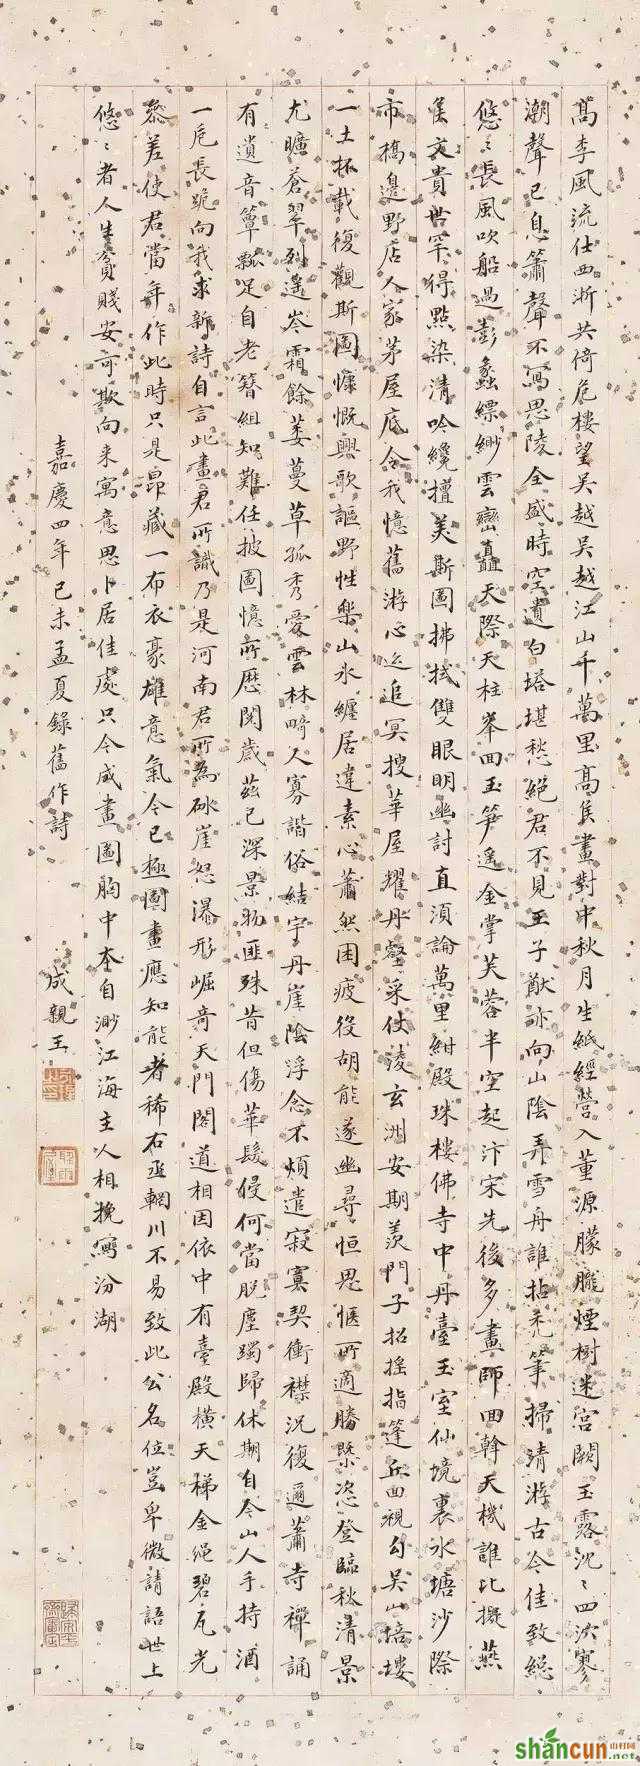 高李風流仕西浙共倚危樓望吳越吳越江山千萬里高侯畫對中秋月生紙經營入董源朦朧煙樹迷宮闕玉露沈〻四泬寥
潮聲已息簫聲不寫思陵全盛時空遺白塔堪愁絕君不見王子猷亦向山陰弄雪舟誰拈禿筆掃清游古今佳致總
悠〻長風吹船過彭蠡縹緲雲巒矗天際天柱峯回玉筍遙金掌芙蓉半空起汴宋先後多畫師回斡天機誰比擬燕
侯文貴世罕得點染清吟纔擅美斯圖拂拭雙眼明幽討直須論萬里紺殿珠樓佛寺中丹臺玉室仙境裏水塘沙際
市橋邊野店人家茅屋底令我憶舊游心迄追冥搜華屋耀丹壑采仗淩玄洲安期羨門子招搖指蓬丘回視勾吳山培塿
一土抔載復觀斯圖慷慨興歌謳野性樂山水纏居違素心蕭然困疲役胡能遂幽尋恒思愜所適勝槩恣登臨秋清景
尤曠蒼翠列遙岑霜餘萎蔓草孤秀愛雲林畸人寡諧俗結宇丹崖陰浮念不煩遣寂寞契衝襟況復邇蕭寺禪誦
有遺音簞瓢足自老簪組知難任披圖憶所歷閱歲茲已深景物匪殊昔但傷華髮侵何當脫塵躅歸休期自今山人手持酒
一卮長跪向我求新詩自言此畫君所識乃是河南君所為砅崖怒瀑形崛奇天門閣道相因依中有臺殿橫天梯金繩碧瓦光
參差使君當年作此時只是昂藏一布衣豪雄意氣今已極圖畫應知能者稀右丞輞川不易致此公名位豈卑微請語世上
悠〻者人生貧賤安可欺向来寓意思卜居佳處只今咸畫圖胸中本自渺江海主人相挽寫汾湖
嘉慶四年己未孟夏錄舊作詩 成親王
shancun 山村网
.net